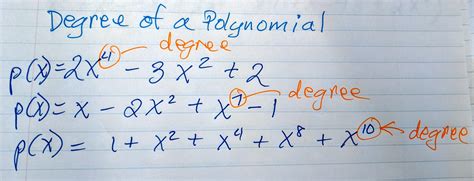 Degree of a Polynomial
degree
p(x)=2x⁴ - 3x² + 2
degree
p(x)=x - 2x² + x⁷ - 1
p(x) = 1 + x² + x⁴ + x⁸ + x¹⁰ degree